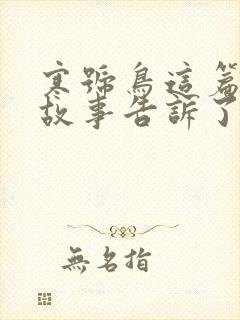 寒號鳥這篇
故事告訴了
無名指